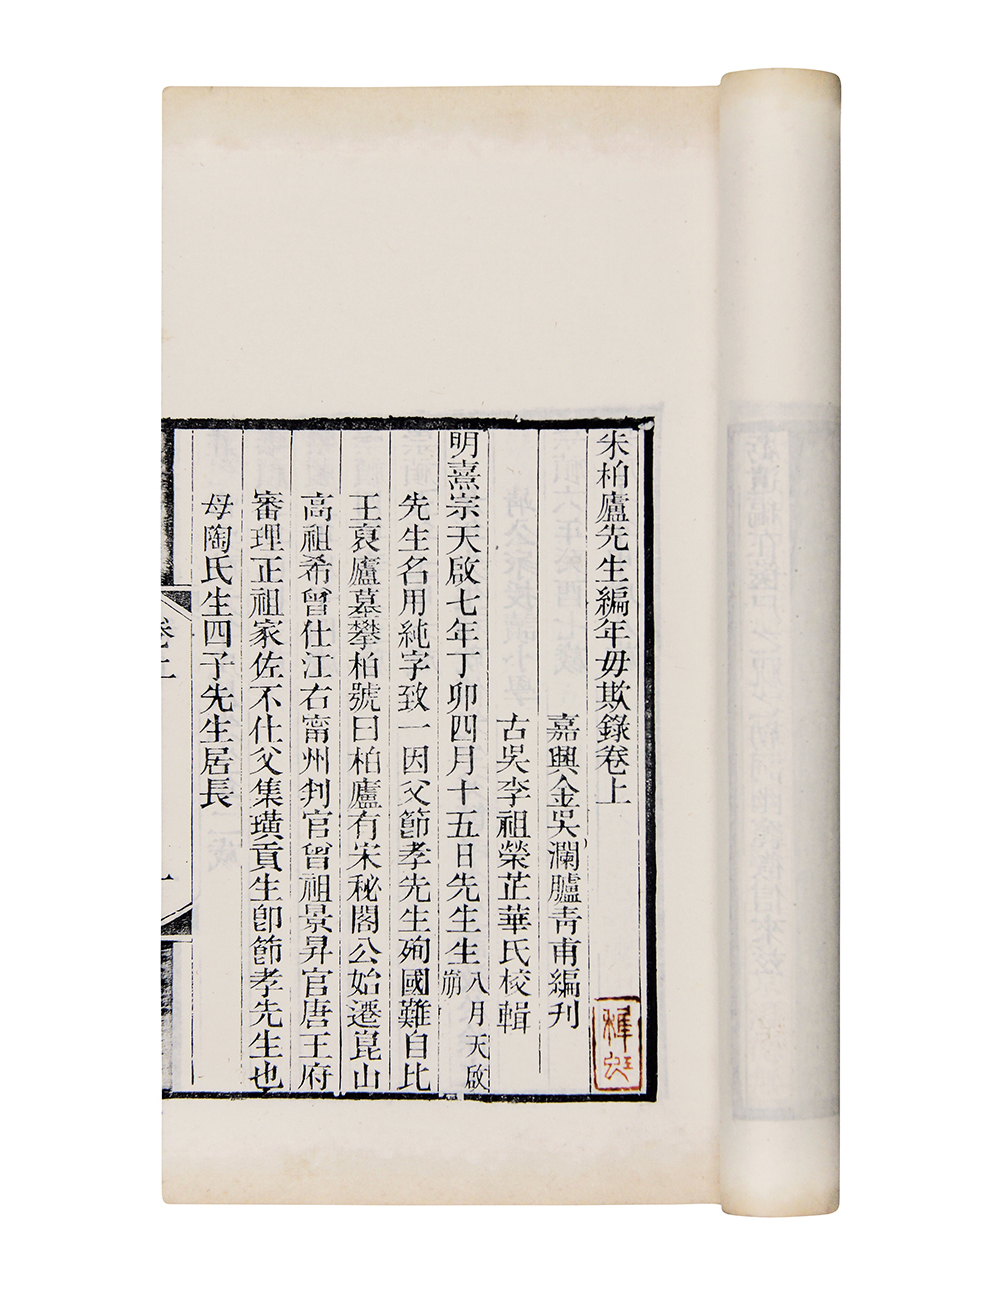 朱柏廬先生編年毋欺錄卷上
嘉興金吳瀾臚青甫編刊
古吳李祖榮芷華氏校輯
明熹宗天啟七年丁卯四月十五日先生生八月天啟崩
先生名用純字致一因父節孝先生殉國難自比
王裒廬墓攀柏號曰柏廬有宋秘閣公始遷崑山
高祖希曾仕江右甯州判官曾祖景昇官唐王府
審理正祖家佐不仕父集璜貢生卽節孝先生也
母陶氏生四子先生居長
卷上
一